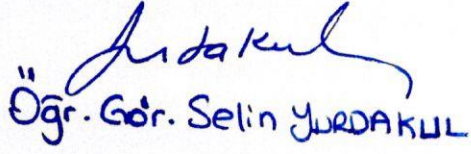 Yurdakul
Öğr. Gör. Selin YURDAKUL